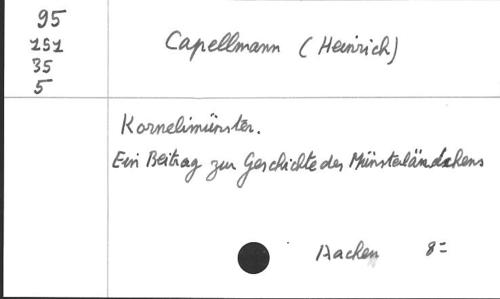 95
151
35
5
Capellmann (Heinrich)
Kornelimünster.
Ein Beitrag zur Geschichte des Münsterländchens
Aachen 8=